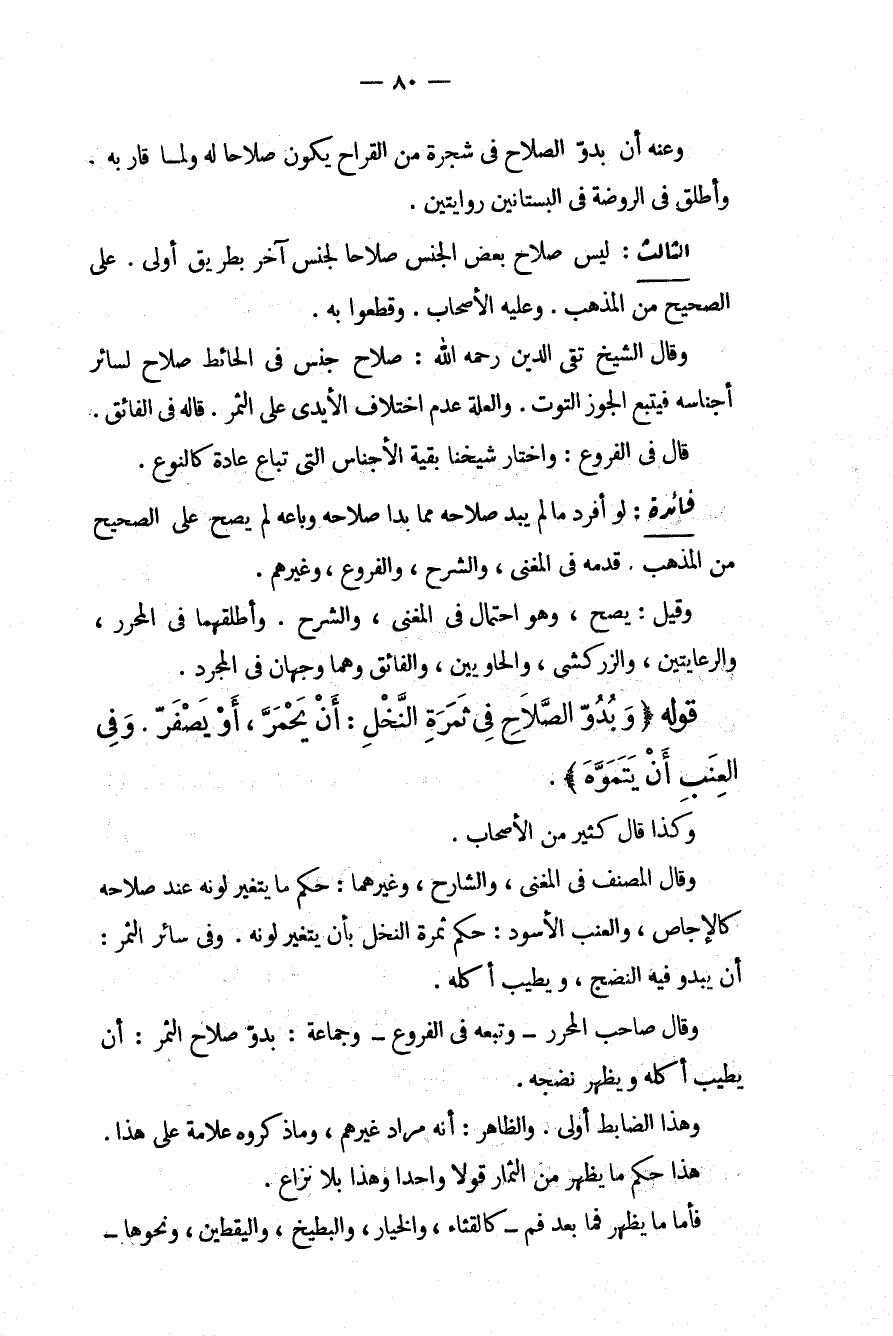 — ٨٠ —
وعنه أن بدوّ الصلاح فى شجرة من القراح يكون صلاحا له ولما قاربه .
وأطلق فى الروضة فى البستانين روايتين .
الثالث : ليس صلاح بعض الجنس صلاحا لجنس آخر بطريق أولى . على
الصحيح من المذهب . وعليه الأصحاب . وقطعوا به .
وقال الشيخ تقى الدين رحمه الله : صلاح جنس فى الحائط صلاح لسائر
أجناسه فيتبع الجوز التوت . والعلة عدم اختلاف الأيدى على الثمر . قاله فى الفائق .
قال فى الفروع : واختار شيخنا بقية الأجناس التى تباع عادة كالنوع .
فائدة : لو أفرد مالم يبد صلاحه مما بدا صلاحه وباعه لم يصح على الصحيح
من المذهب . قدمه فى المغنى ، والشرح ، والفروع ، وغيرهم .
وقيل : يصح ، وهو احتمال فى المغنى ، والشرح . وأطلقهما فى المحرر ،
والرعايتين ، والزركشى ، والحاويين ، والفائق وهما وجهان فى المجرد .
قوله ﴿ وَبُدُوّ الصَّلَاحِ فِى ثَمَرَةِ النَّخْلِ : أَنْ يَحْمَرَّ ، أَوْ يَصْفَرّ . وَفِى
العِنَبِ أَنْ يَتَمَوَّهَ ﴾ .
وكذا قال كثير من الأصحاب .
وقال المصنف فى المغنى ، والشارح ، وغيرهما : حكم ما يتغير لونه عند صلاحه
كالإجاص ، والعنب الأسود : حكم ثمرة النخل بأن يتغير لونه . وفى سائر الثمر :
أن يبدو فيه النضج ، ويطيب أكله .
وقال صاحب المحرر – وتبعه فى الفروع – وجماعة : بدوّ صلاح الثمر : أن
يطيب أكله ويظهر نضجه .
وهذا الضابط أولى . والظاهر : أنه مراد غيرهم ، وماذكروه علامة على هذا .
هذا حكم ما يظهر من الثمار قولا واحدا وهذا بلا نزاع .
فأما ما يظهر فما بعد فم – كالقثاء ، والخيار ، والبطيخ ، واليقطين ، ونحوها –